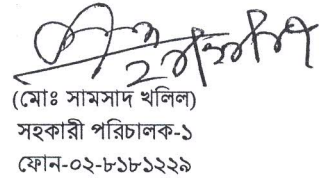 (মোঃ সামসাদ খলিল)
সহকারী পরিচালক-১
ফোন-০২-৮১৮১২২৯